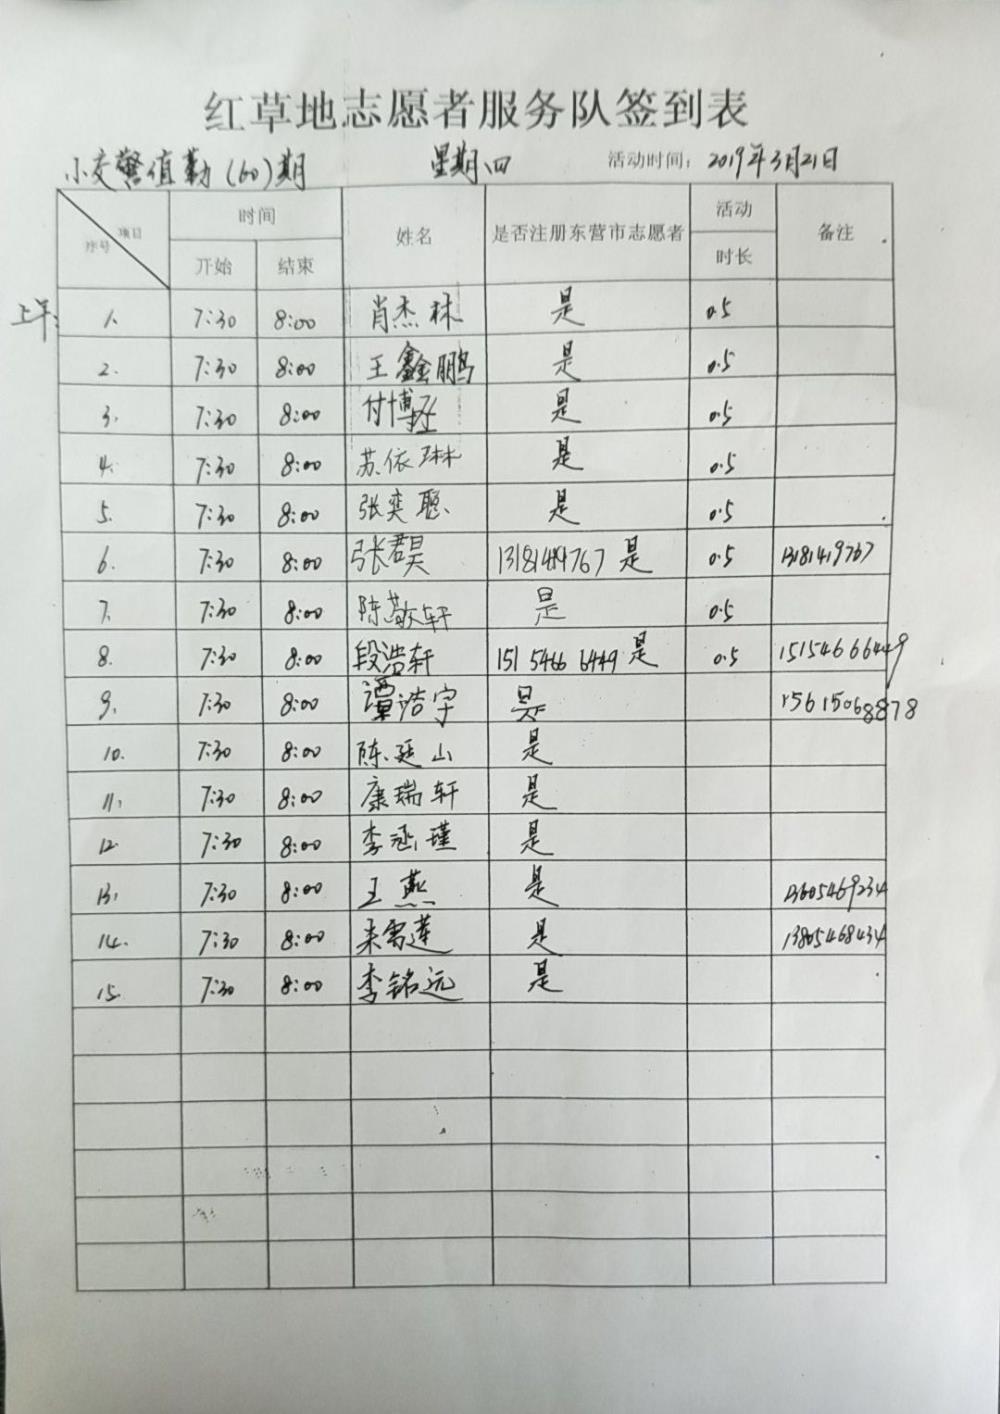 红草地志愿者服务队签到表
小交警值勤(60)期 星期四 活动时间: 2019年3月21日
项目 序号 时间 姓名 是否注册东营市志愿者 活动 备注
开始 结束 时长
上午: 1. 7:30 8:00 肖杰林 是 0.5
2. 7:30 8:00 王鑫鹏 是 0.5
3. 7:30 8:00 付博 是 0.5
4. 7:30 8:00 苏依琳 是 0.5
5. 7:30 8:00 张奕聪 是 0.5
6. 7:30 8:00 张君昊 是 0.5 13181419767
7. 7:30 8:00 陈敬轩 是 0.5
8. 7:30 8:00 段浩轩 151 5466 6449 是 0.5 15154666449
9. 7:30 8:00 谭浩宇 是 15615068878
10. 7:30 8:00 陈延山 是
11. 7:30 8:00 康瑞轩 是
12. 7:30 8:00 李涵瑾 是
13. 7:30 8:00 王燕 是 13605469234
14. 7:30 8:00 是 13805468434
15. 7:30 8:00 李铭远 是